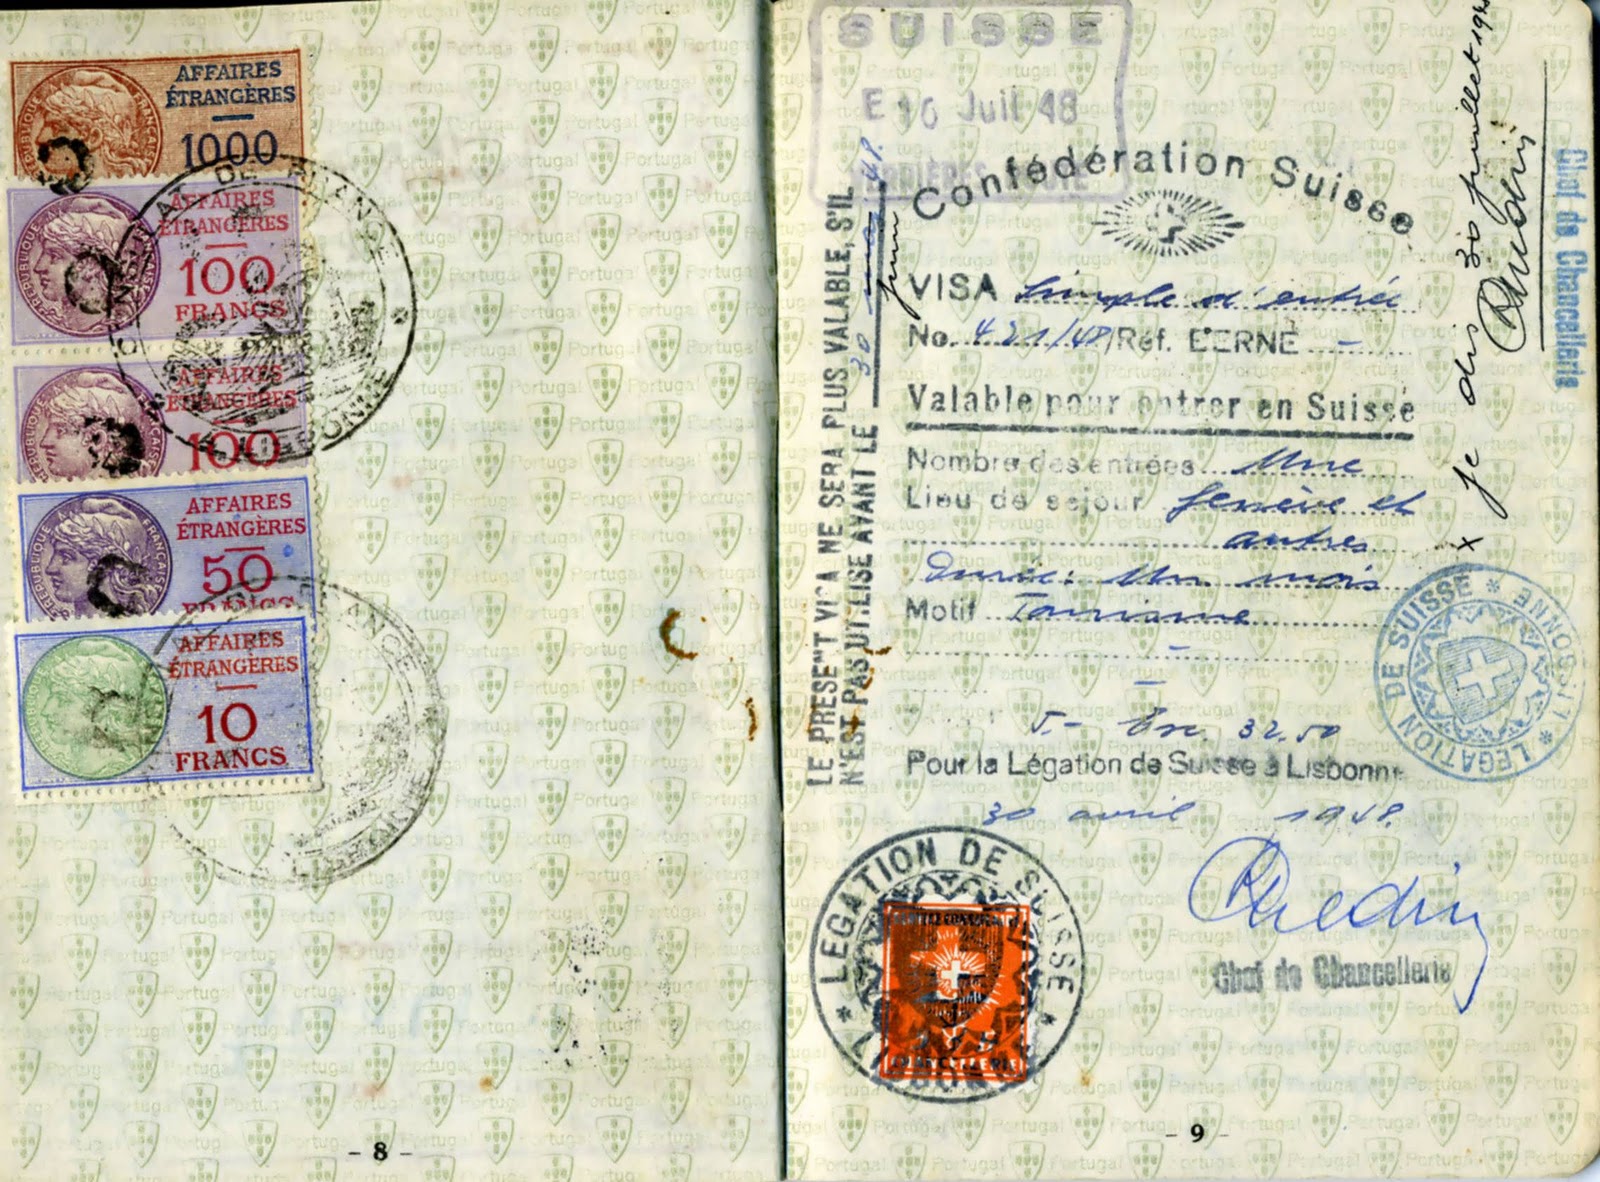 AFFAIRES
ÉTRANGÈRES
1000
AFFAIRES
ÉTRANGÈRES
100
FRANCS
AFFAIRES
ÉTRANGÈRES
100
AFFAIRES
ÉTRANGÈRES
50
FRANCS
AFFAIRES
ÉTRANGÈRES
10
FRANCS
- 8 -
SUISSE
E 10 Juil 48
Confédération Suisse
VISA Simple d'entrée
No. 421/48/Réf. BERNE -
Valable pour entrer en Suisse
Nombre des entrées Une
Lieu de séjour Genève et
autres
Durée: Un mois
Motif Tourisme
5.- Esc. 32.50
Pour la Légation de Suisse à Lisbonne
30 avril 1948.
Chef de Chancellerie
LE PRÉSENT VISA NE SERA PLUS VALABLE, S'IL
N'EST PAS UTILISÉ AVANT LE 30 juin 48.
x je dis 30 juillet
Chef de Chancellerie
LEGATION DE SUISSE * LISBONNE *
LEGATION DE SUISSE * LISBONNE *
- 9 -